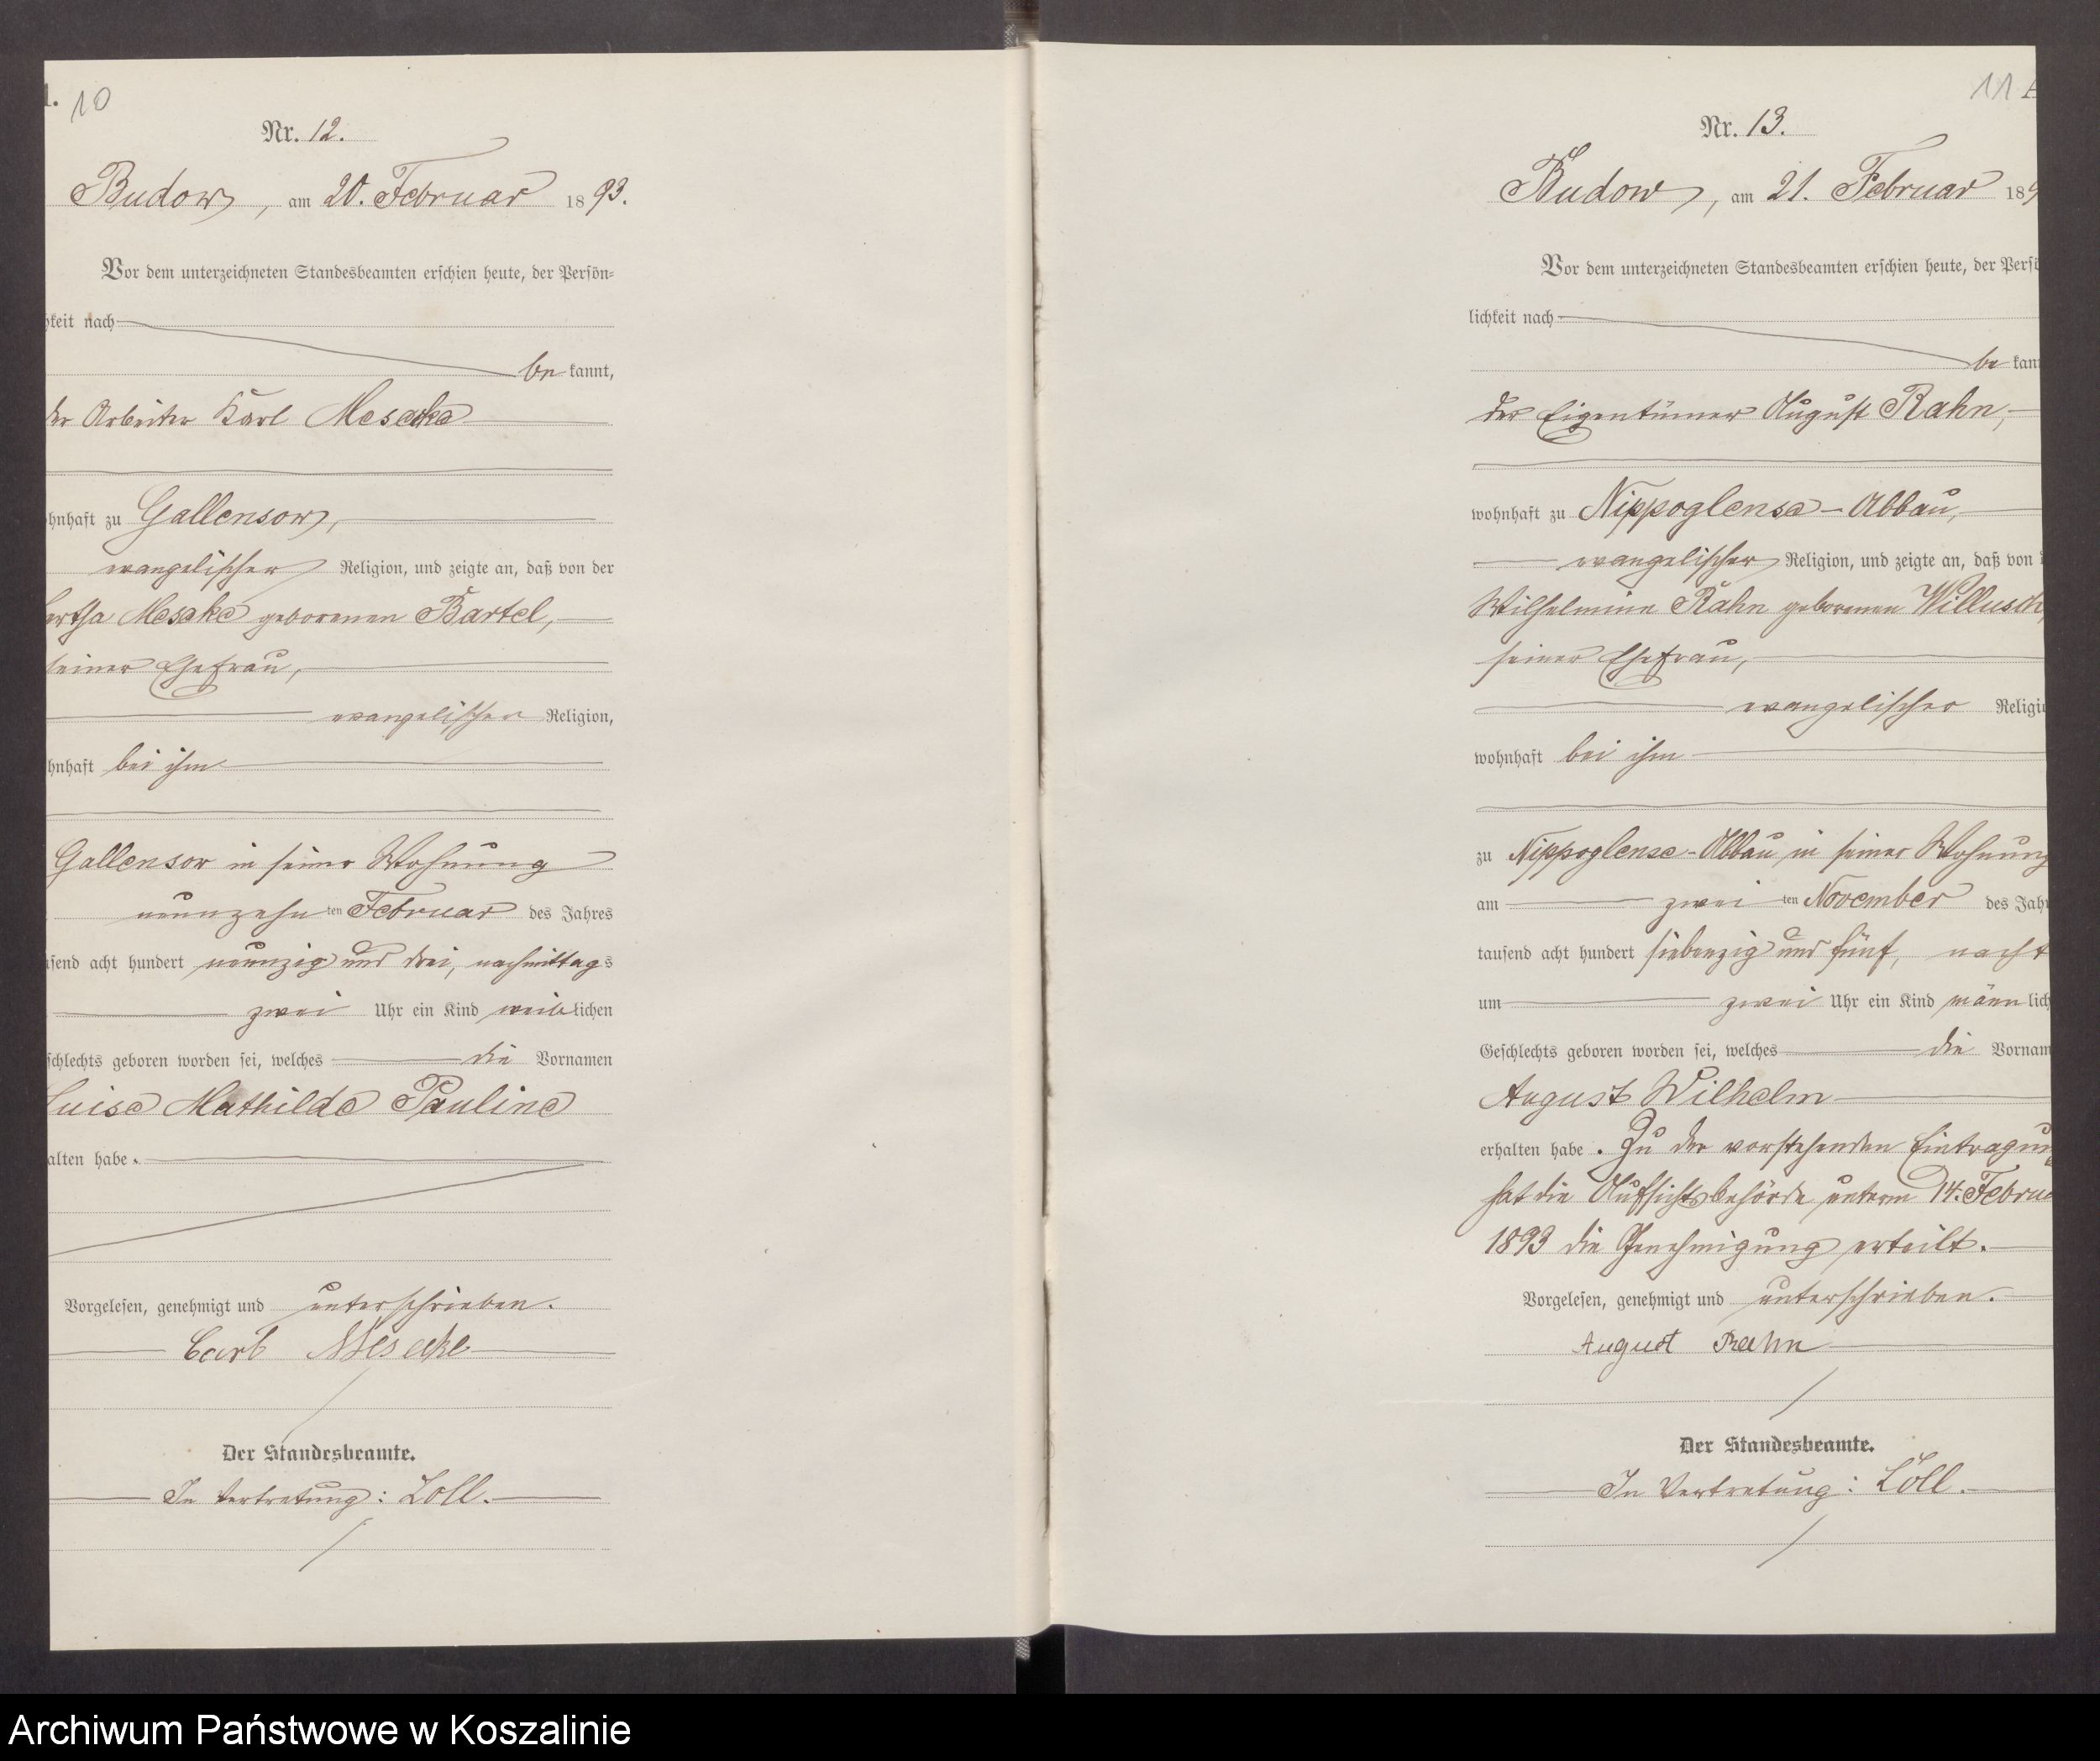 10
Nr. 12.
Budow, am 20. Februar 1893.
Vor dem unterzeichneten Standesbeamten erschien heute, der Persön-
keit nach
be kannt,
der Arbeiter Karl Meseke
hnhaft zu Gallensow,
evangelischer Religion, und zeigte an, daß von der
ertha Meseke geborenen Bartel,
seiner Ehefrau,
evangelischer Religion,
hnhaft bei ihm
Gallensow in seiner Wohnung
neunzehn ten Februar des Jahres
send acht hundert neunzig und drei, nachmittags
zwei Uhr ein Kind weiblichen
schlechts geboren worden sei, welches die Vornamen
Luise Mathilde Pauline
alten habe.
Vorgelesen, genehmigt und unterschrieben.
Carl Mesecke
Der Standesbeamte.
In Vertretung: Loll.
11 A
Nr. 13.
Budow, am 21. Februar 189
Vor dem unterzeichneten Standesbeamten erschien heute, der Persö
lichkeit nach
be kan
der Eigentümer August Rahn,
wohnhaft zu Nippoglense-Abbau,
evangelischer Religion, und zeigte an, daß von
Wilhelmine Rahn geborenen Willusch,
seiner Ehefrau,
evangelischer Religi
wohnhaft bei ihm
zu Nippoglense-Abbau in seiner Wohnung
am zwei ten November des Jah
tausend acht hundert siebenzig und fünf, nacht
um zwei Uhr ein Kind männ lich
Geschlechts geboren worden sei, welches die Vornam
August Wilhelm
erhalten habe. Zu der vorstehenden Eintragung
hat die Aufsichtsbehörde unterm 14. Februa
1893 die Genehmigung erteilt.
Vorgelesen, genehmigt und unterschrieben.
August Rahn
Der Standesbeamte.
In Vertretung: Loll.
Archiwum Państwowe w Koszalinie